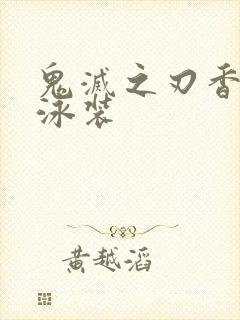 鬼滅之刃香
泳装
黄越滔